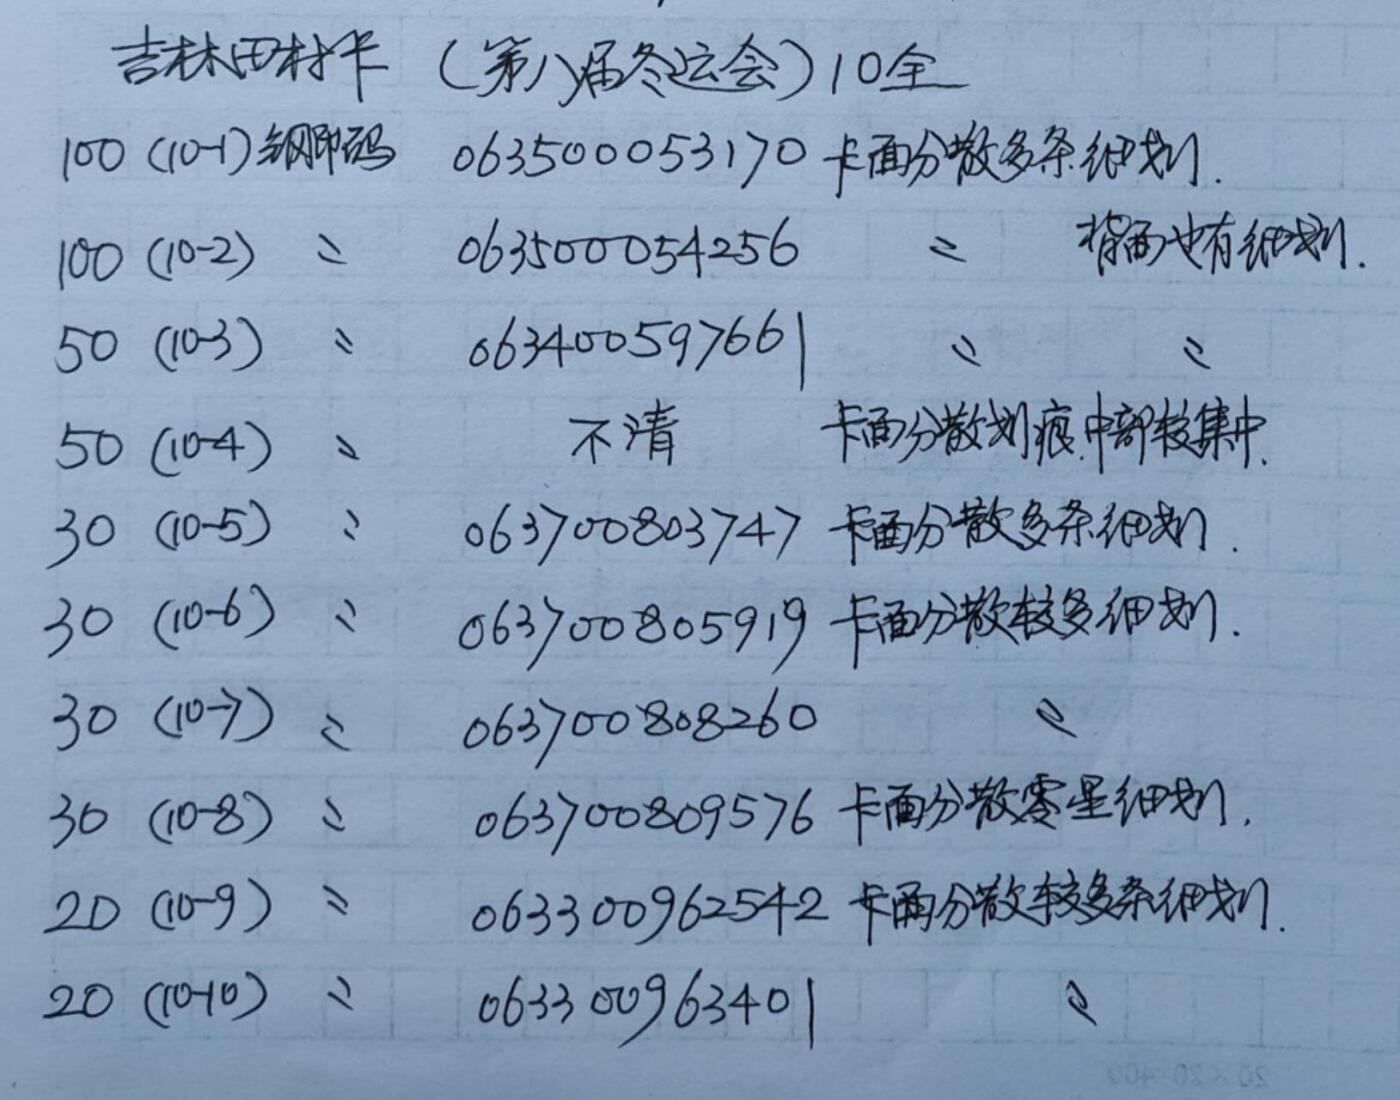 吉林田村卡（第八届冬运会）10全
100 (10-1) 钢印码 063500053170 卡面分散多条细划.
100 (10-2) 〃 063500054256 〃 背面也有细划.
50 (10-3) 〃 063400597661 〃 〃
50 (10-4) 〃 不清 卡面分散划痕.中部较集中.
30 (10-5) 〃 063700803747 卡面分散多条细划.
30 (10-6) 〃 063700805919 卡面分散较多细划.
30 (10-7) 〃 063700808260 〃
30 (10-8) 〃 063700809576 卡面分散零星细划.
20 (10-9) 〃 063300962542 卡面分散较多条细划.
20 (10-10) 〃 063300963401 〃
20×20=400